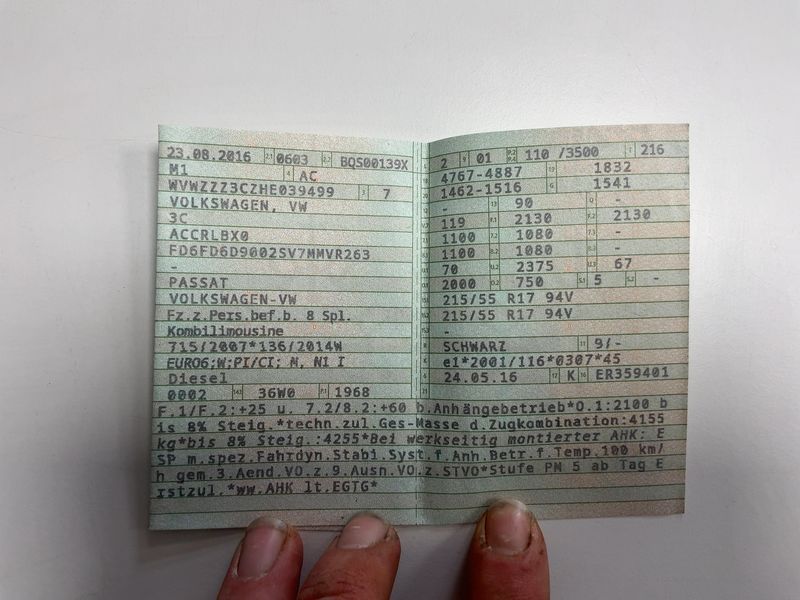 23.08.2016 2.1 0603 2.2 BQS00139X
M1 4 AC
WVWZZZ3CZHE039499 3 7
VOLKSWAGEN, VW
3C
ACCRLBX0
FD6FD6D9002SV7MMVR263
-
PASSAT
VOLKSWAGEN-VW
Fz.z.Pers.bef.b. 8 Spl.
Kombilimousine
715/2007*136/2014W
EURO6;W;PI/CI; M, N1 I
Diesel
0002 36W0 1968
2 9 01 110 /3500 216
4767-4887 1832
1462-1516 1541
- 90 -
119 2130 2130
1100 1080 -
1100 1080 -
70 2375 67
2000 750 5 -
215/55 R17 94V
215/55 R17 94V
-
SCHWARZ 11 9/-
e1*2001/116*0307*45
24.05.16 17 K 16 ER359401
F.1/F.2:+25 u. 7.2/8.2:+60 b.Anhängebetrieb*O.1:2100 b
is 8% Steig.*techn.zul.Ges-Masse d.Zugkombination:4155
kg*bis 8% Steig.:4255*Bei werkseitig montierter AHK: E
SP m.spez.Fahrdyn.Stabi.Syst.f.Anh.Betr.f.Temp.100 km/
h gem.3.Aend.VO.z.9.Ausn.VO.z.STVO*Stufe PM 5 ab Tag E
rstzul.*ww.AHK lt.EGTG*